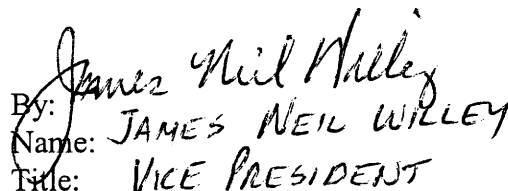 By: James Neil Willey
Name: JAMES NEIL WILLEY
Title: VICE PRESIDENT